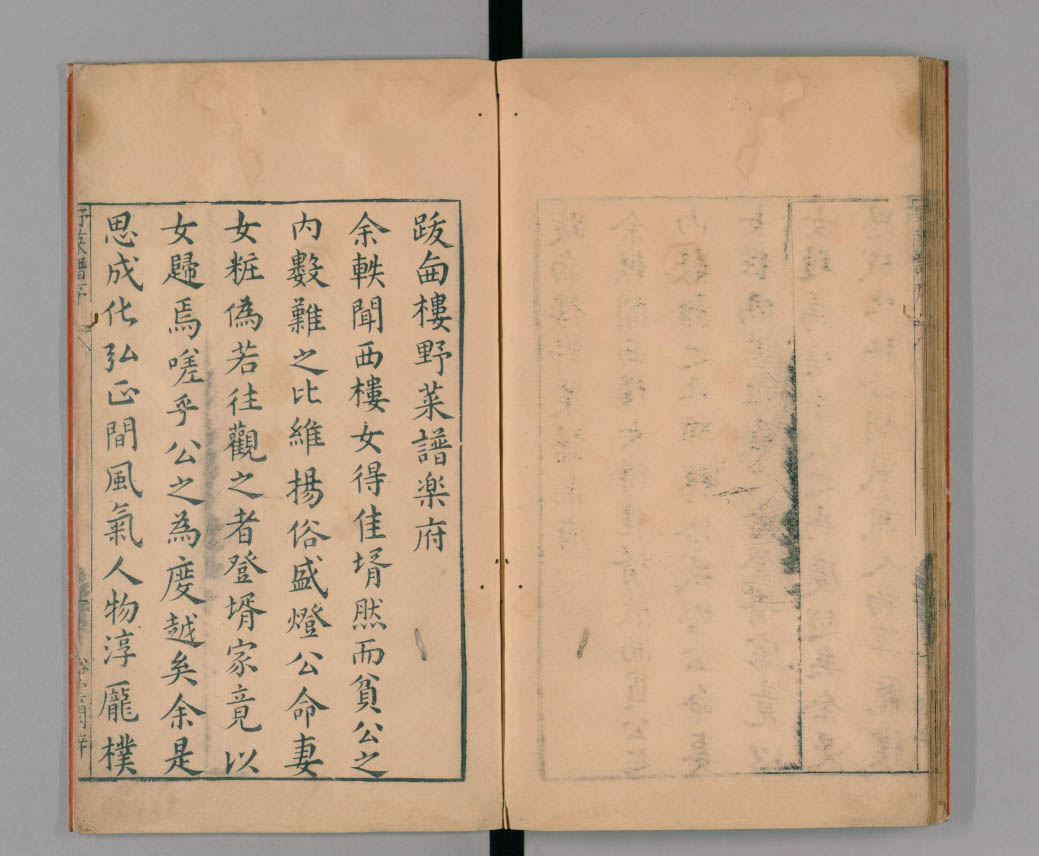 跋㢲樓野菜譜楽府
余軼聞西樓女得佳壻然而貧公之
内數難之比維揚俗盛燈公命妻
女粧偽若往觀之者登壻家竟以
女歸焉嗟乎公之為度越矣余是
思成化弘正間風氣人物淳龐樸
野菜譜序